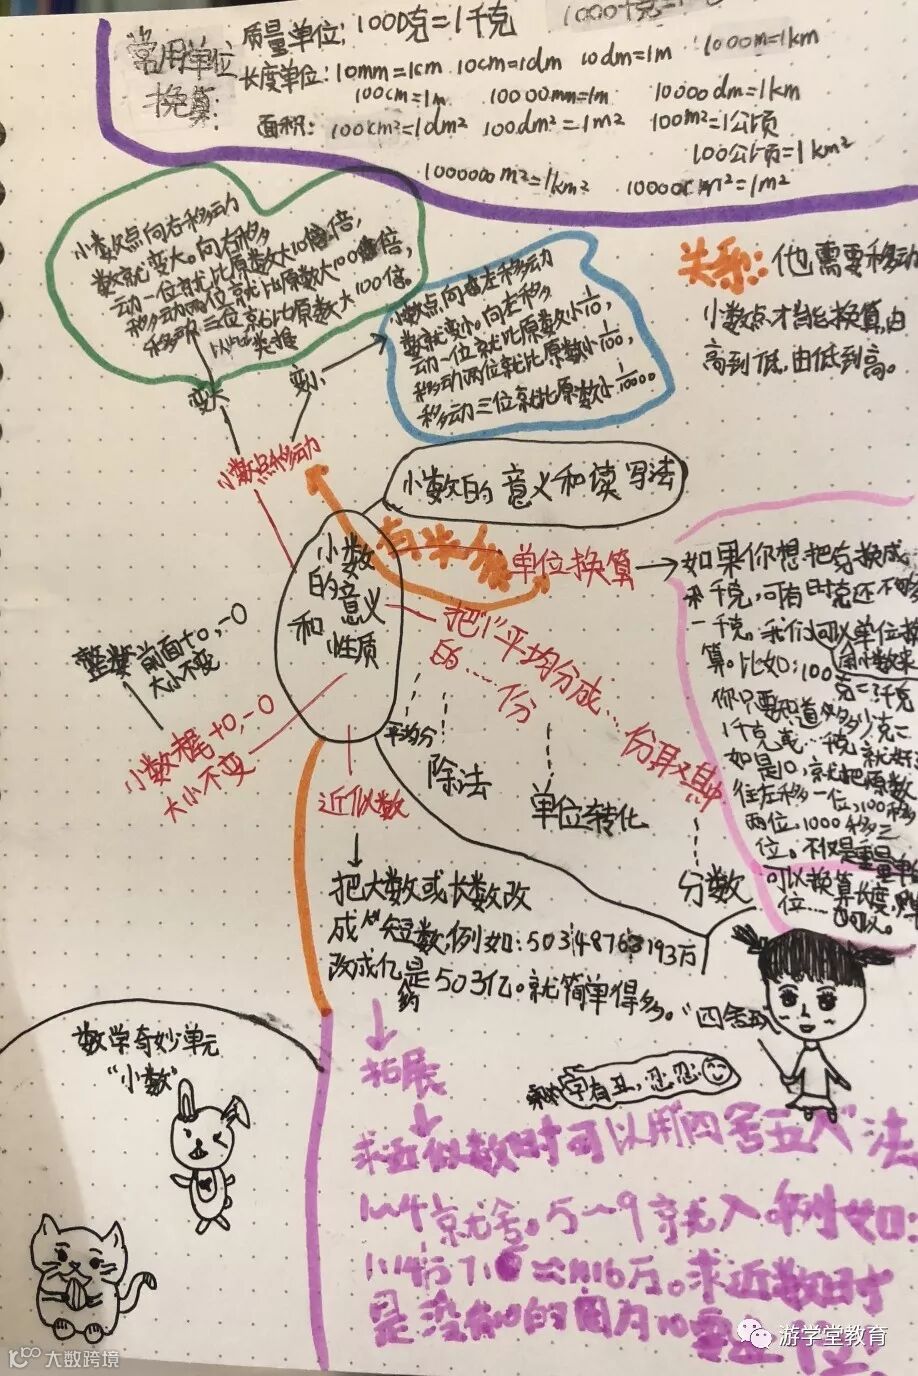 常用单位
换算：
质量单位：1000克=1千克
1000千克=1
长度单位：10mm=1cm 10cm=1dm 10dm=1m 1000m=1km
100cm=1m 1000mm=1m 10000dm=1km
面积：100cm²=1dm² 100dm²=1m² 100m²=1公顷
100公顷=1km²
1000000m²=1km² 10000cm²=1m²
小数点向右移动
数就变大。向右移
动一位就比原数大10倍，
移动两位就比原数大100倍，
移动三位就比原数大100倍。
以此类推
变大
小数点向左移动
数就变小。向左移
动一位就比原数小1/10，
移动两位就比原数小1/100，
移动三位就比原数小1/1000。
变小
关系：他需要移动
小数点才能换算，由
高到低，由低到高。
小数点移动
小数的意义和读写法
有关系
单位换算
小数
的意义
和性质
如果你想把克换成
千克，可有时克还不够
一千克。我们可以单位换
算。比如：100
用小数来
克=?千克
你只要知道多少克=
1千克或…千克就好
如是10，就把原数
往左移一位，100移
两位，1000移三
位。不仅是重量单
可以换算长度，
位……也可以。
把"1"平均分成…
的…份
份取其中
平均分
除法
单位转化
分数
整数前面+0，-0
大小不变
小数尾+0，-0
大小不变
近似数
把大数或长数改
成"短"数，例如：503,4876,3193万
改成亿是约503亿。就简单得多。"四舍五
数学奇妙单元
"小数"
字有丑，忍忍
拓展
求近似数时可以用四舍五入法
1~4就舍。5~9就入。例如：
求近似数时
游学堂教育
大数跨境